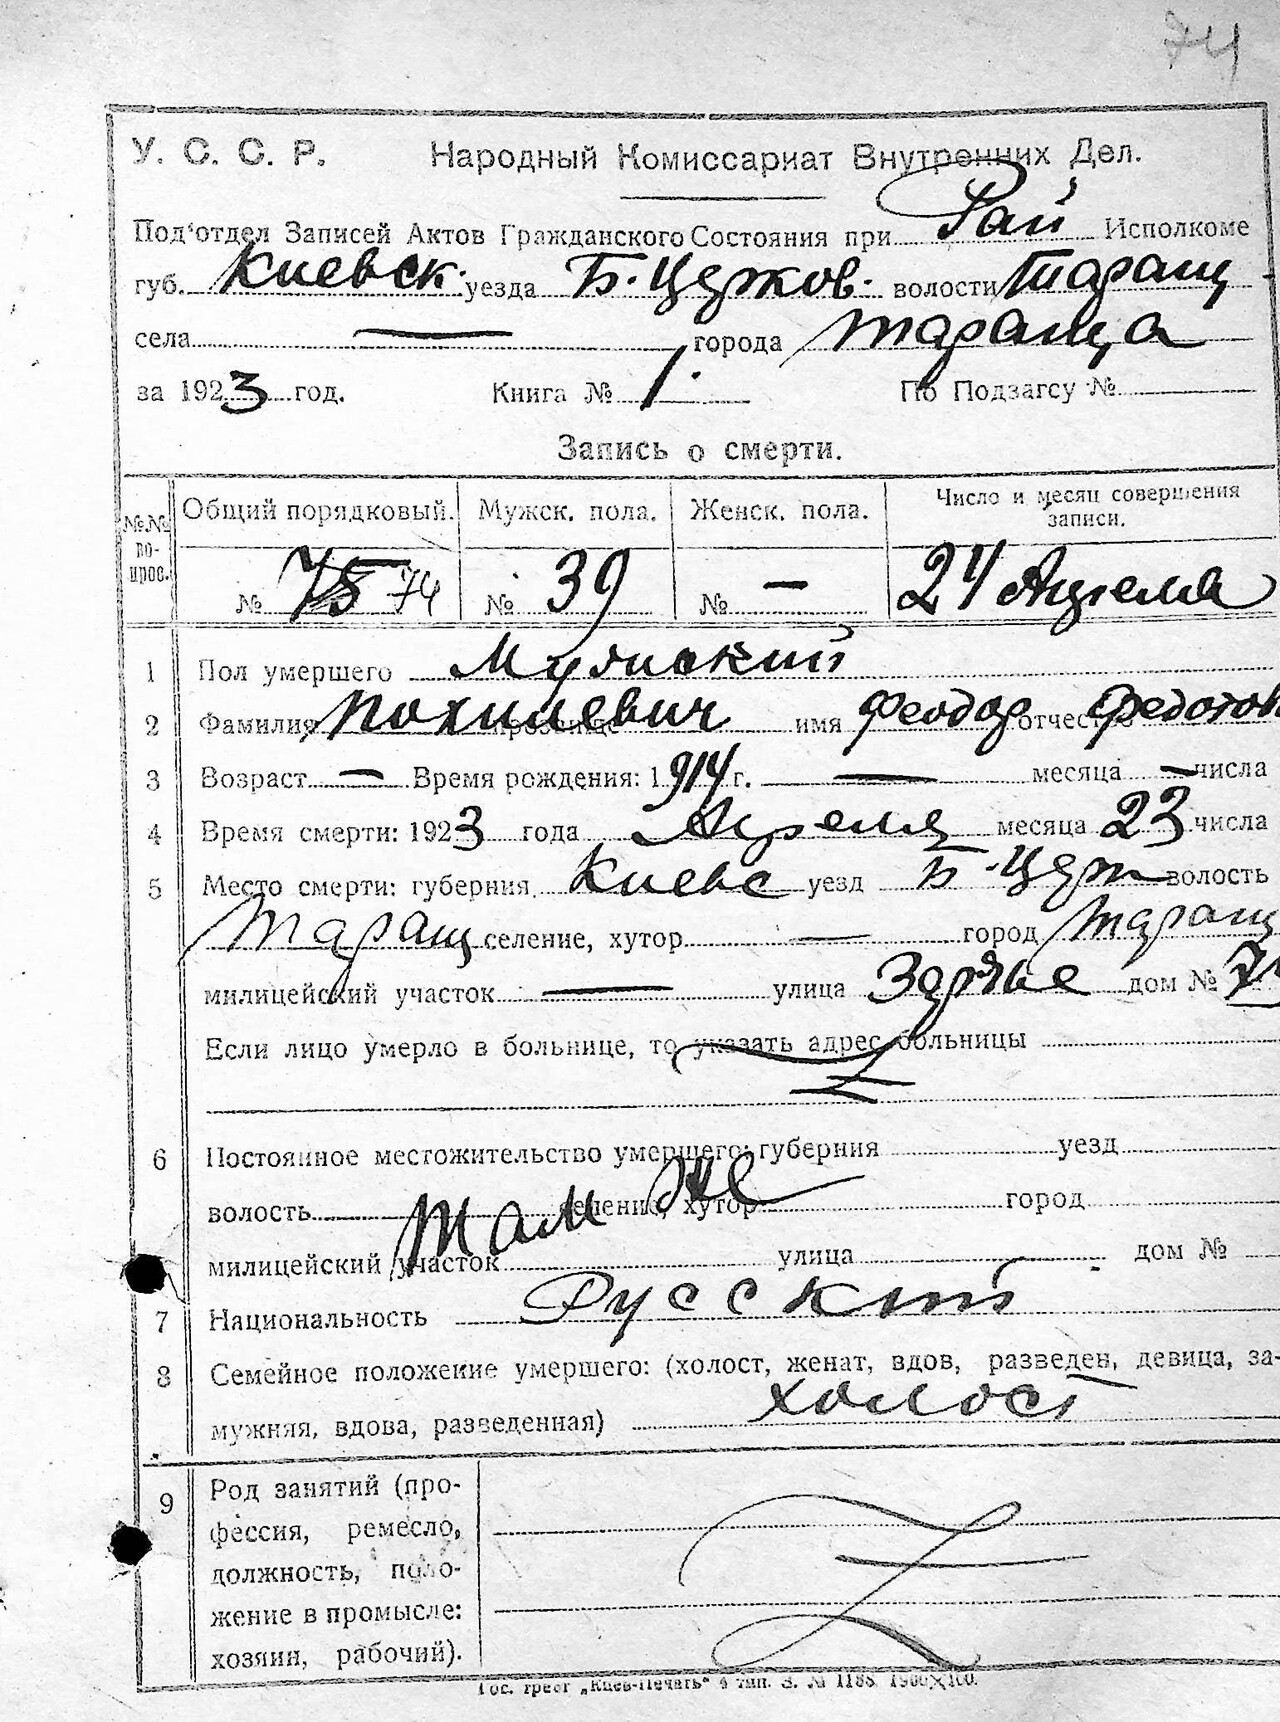 74
У. С. С. Р. Народный Комиссариат Внутренних Дел.
Под'отдел Записей Актов Гражданского Состояния при Рай Исполкоме
губ. Киевск. уезда Б. Церков. волости Таращ
села — города Тараща
за 1923 год. Книга № 1. По Подзагсу №
Запись о смерти.
№№ по- прос. Общий порядковый. Мужск. пола. Женск. пола. Число и месяц совершения записи.
№ 75 74 № 39 № — 24 Апреля
1 Пол умершего Мужский
2 Фамилия Похилевич прозвище имя Феодор отчест Федотов
3 Возраст — Время рождения: 1914 г. — месяца — числа
4 Время смерти: 1923 года Апреля месяца 23 числа
5 Место смерти: губерния Киевс уезд Б-Церк волость
Таращ селение, хутор — город Таращ
милицейский участок — улица Заречье дом №
Если лицо умерло в больнице, то указать адрес больницы
6 Постоянное местожительство умершего: губерния уезд
волость селение, хутор город
Там же
милицейский участок улица дом №
7 Национальность Русский
8 Семейное положение умершего: (холост, женат, вдов, разведен, девица, за-
мужняя, вдова, разведенная) холост
9 Род занятий (про-
фессия, ремесло,
должность, поло-
жение в промысле:
хозяин, рабочий).
Гос. трест „Киев-Печать" 4 тип. З. № 1188 1900×100.